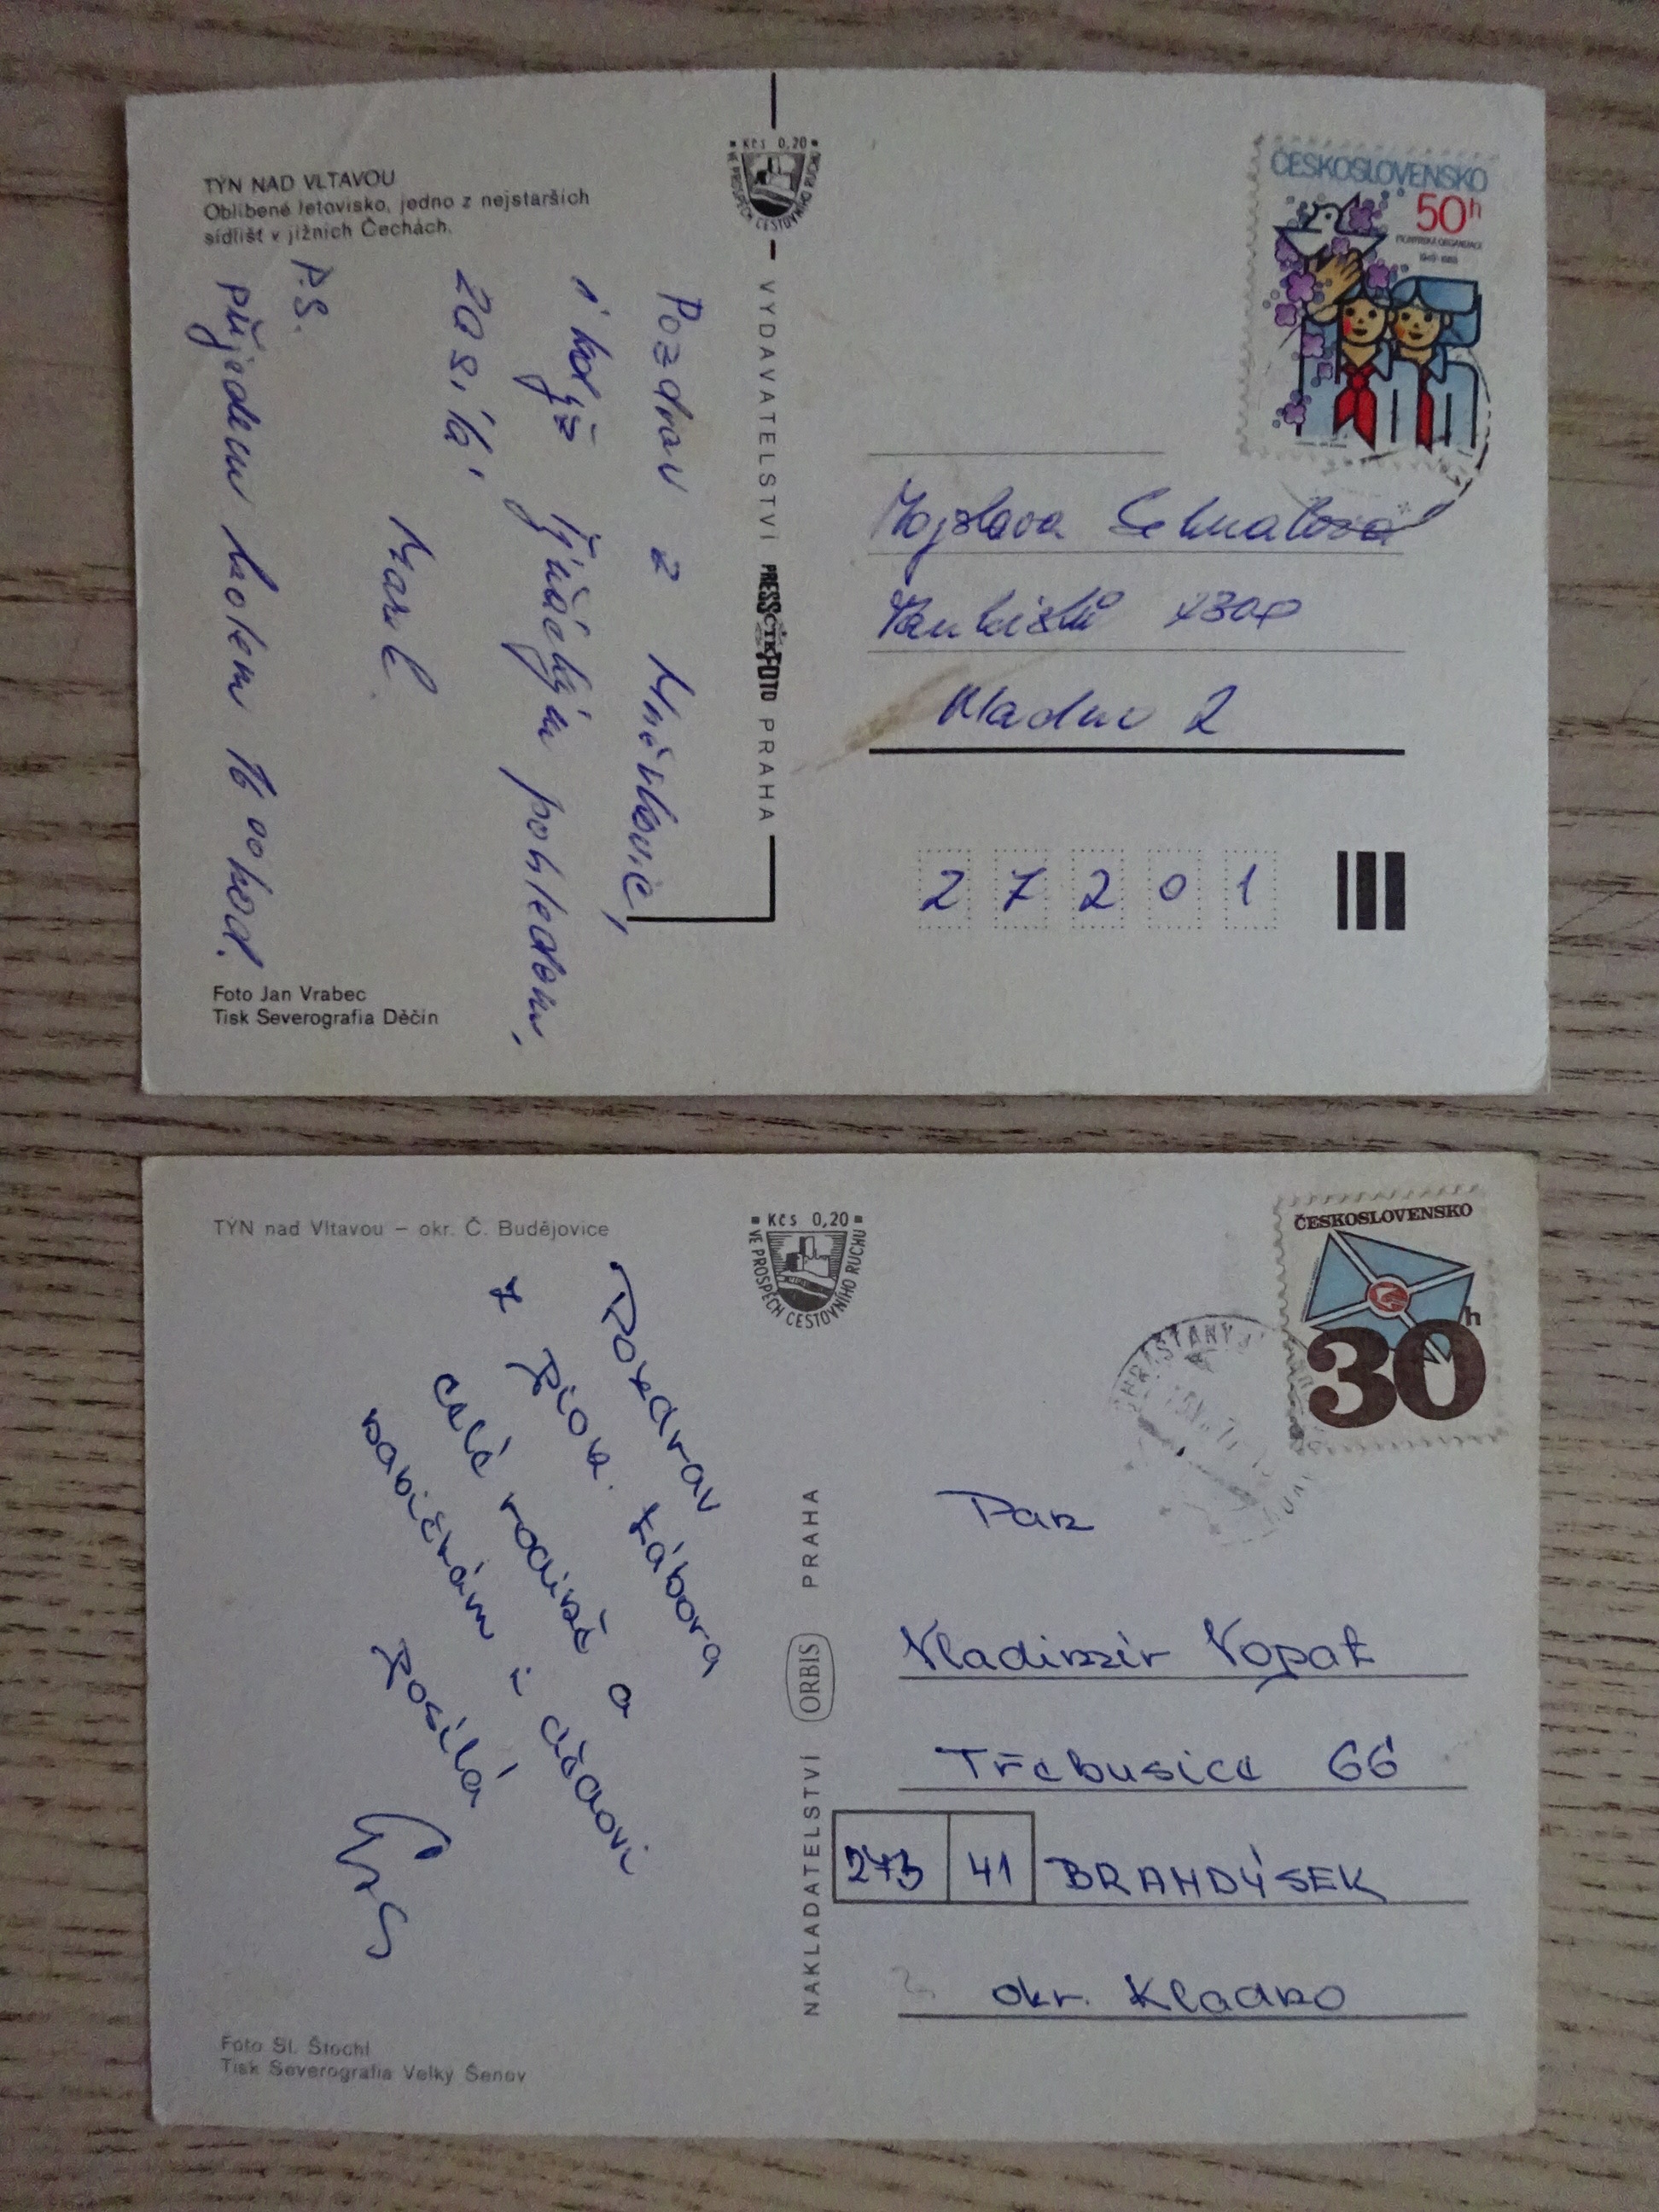 TÝN NAD VLTAVOU
Oblíbené letovisko, jedno z nejstarších
sídlišť v jižních Čechách.
Kčs 0,20
VE PROSPĚCH CESTOVNÍHO RUCHU
Pozdrav z
i když jináčím pohledem,
zasílá
Karel
P.S.
Přijedem kolem 16 00 hod.
Foto Jan Vrabec
Tisk Severografia Děčín
VYDAVATELSTVÍ PRESSFOTO PRAHA
ČESKOSLOVENSKO
50h
PIONÝRSKÁ ORGANIZACE
Kladno 2
27201
TÝN nad Vltavou – okr. Č. Budějovice
Kčs 0,20
VE PROSPĚCH CESTOVNÍHO RUCHU
Pozdrav
z pion. tábora
celé rodině a
babičkám i dědovi
posílá
Foto Sl. Štochl
Tisk Severografia Velký Šenov
NAKLADATELSTVÍ ORBIS PRAHA
ČESKOSLOVENSKO
30h
Pan
Vladimír Vopat
Třebusice 66
273 41 BRANDÝSEK
okr. Kladno